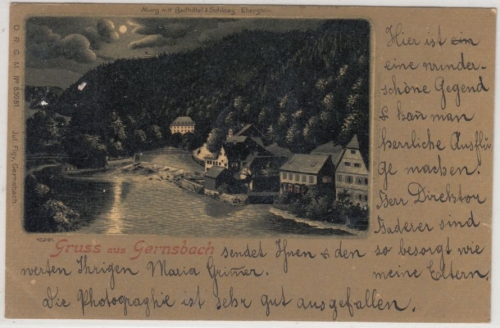 Murg mit Badhôtel & Schloss Eberstein
D. R. G. M. Nº 88690.
Gruss aus Gernsbach
Hier ist ein
eine wunder-
schöne Gegend
& kann man
herrliche Ausflü
ge machen.
Herr Direktor
Baderer sind
so besorgt wie
meine Eltern.
sendet Ihnen & den
werten Ihrigen Maria Grimer.
Die Photographie ist sehr gut ausgefallen.